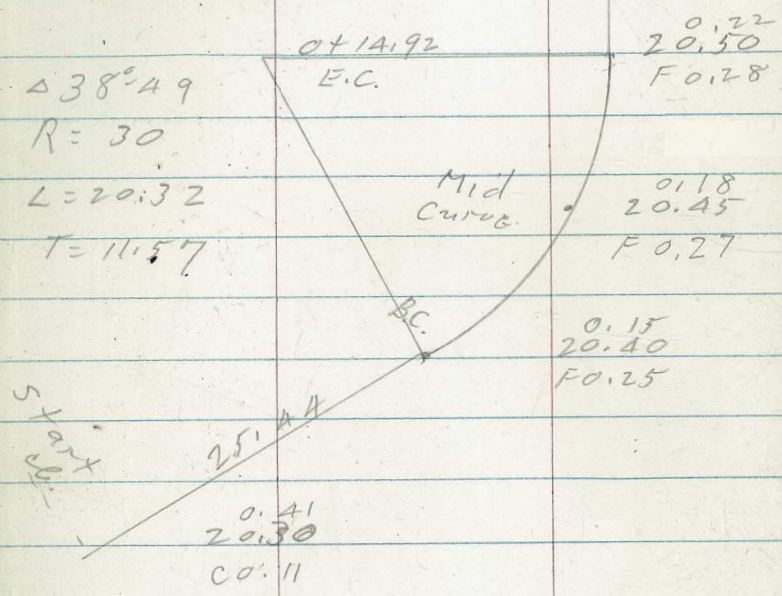 0+14.92
E.C.
0.22
20.50
F 0.28
Δ 38°-49
R = 30
L = 20.32
T = 11.57
Mid
Curve
0.18
20.45
F 0.27
B.C.
0.15
20.40
F 0.25
Start
25.44
0.41
20.30
C 0.11